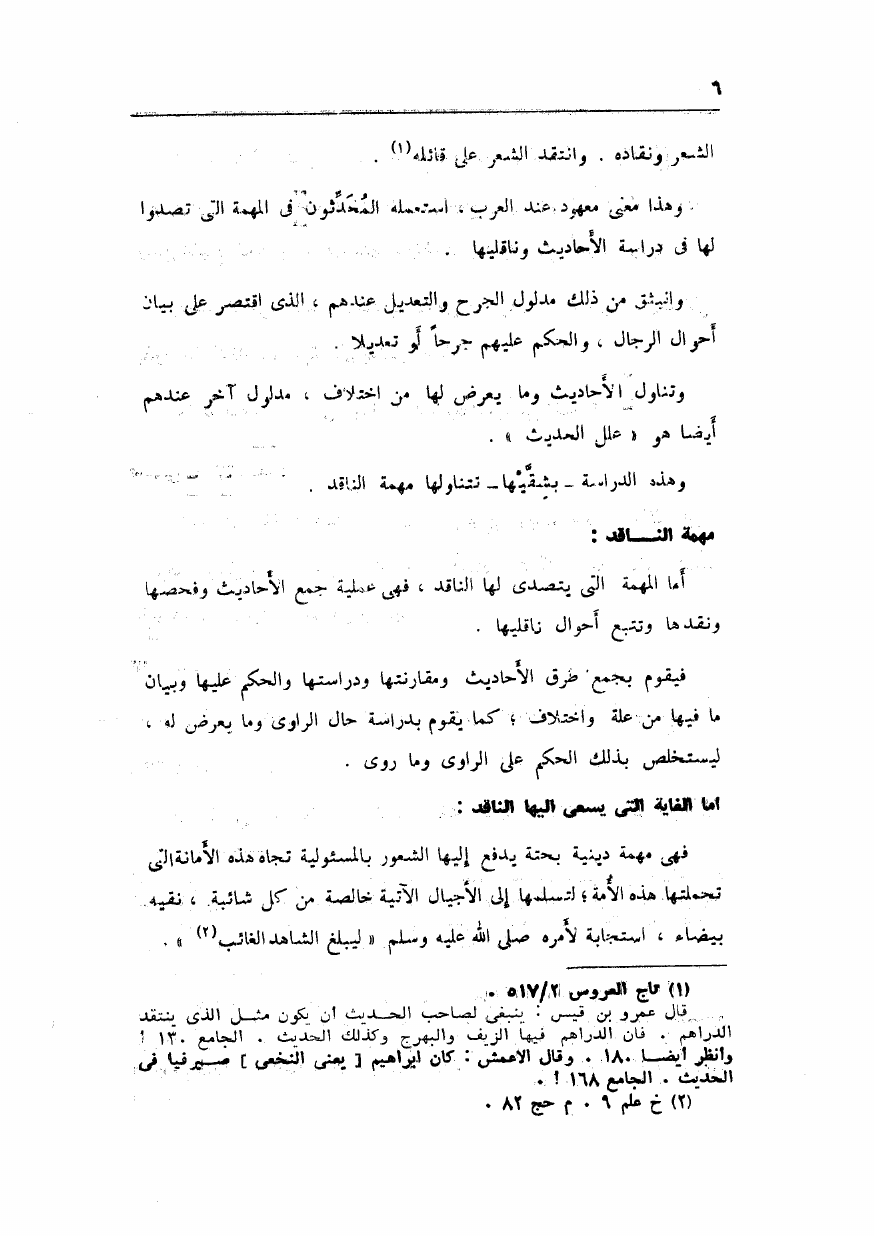 ٦
الشعر ونقاده . وانتقد الشعر على قائله(١) .
وهذا معنى معهود عند العرب ، استعمله المُحَدِّثون فى المهمة التى تصدوا
لها فى دراسة الأحاديث وناقليها .
وانبثق من ذلك مدلول الجرح والتعديل عندهم ، الذى اقتصر على بيان
أحوال الرجال ، والحكم عليهم جرحاً أو تعديلا .
وتناول الأحاديث وما يعرض لها من اختلاف ، مدلول آخر عندهم
أيضا هو « علل الحديث » .
وهذه الدراسة ــ بشِقَّيْها ــ تتناولها مهمة الناقد .
مهمة النـــاقد :
أما المهمة التى يتصدى لها الناقد ، فهى عملية جمع الأحاديث وفحصها
ونقدها وتتبع أحوال ناقليها .
فيقوم بجمع طرق الأحاديث ومقارنتها ودراستها والحكم عليها وبيان
ما فيها من علة واختلاف ؛ كما يقوم بدراسة حال الراوى وما يعرض له ،
ليستخلص بذلك الحكم على الراوى وما روى .
اما الغاية التى يسعى اليها الناقد :
فهى مهمة دينية بحتة يدفع إليها الشعور بالمسئولية تجاه هذه الأمانة التى
تحملتها هذه الأمة ؛ لتسلمها إلى الأجيال الآتية خالصة من كل شائبة ، نقيه
بيضاء ، استجابة لأمره صلى الله عليه وسلم « ليبلغ الشاهد الغائب(٢) » .
(١) تاج العروس ٥١٧/٢ .
قال عمرو بن قيس : ينبغى لصاحب الحــديث ان يكون مثــل الذى ينتقد
الدراهم . فان الدراهم فيها الزيف والبهرج وكذلك الحديث . الجامع ١٣٠ !
وانظر أيضــا ١٨٠ . وقال الاعمش : كان ابراهيم [ يعنى النخعى ] صــيرفيا فى
الحديث . الجامع ١٦٨ ! .
(٢) خ علم ٩ . م حج ٨٢ .